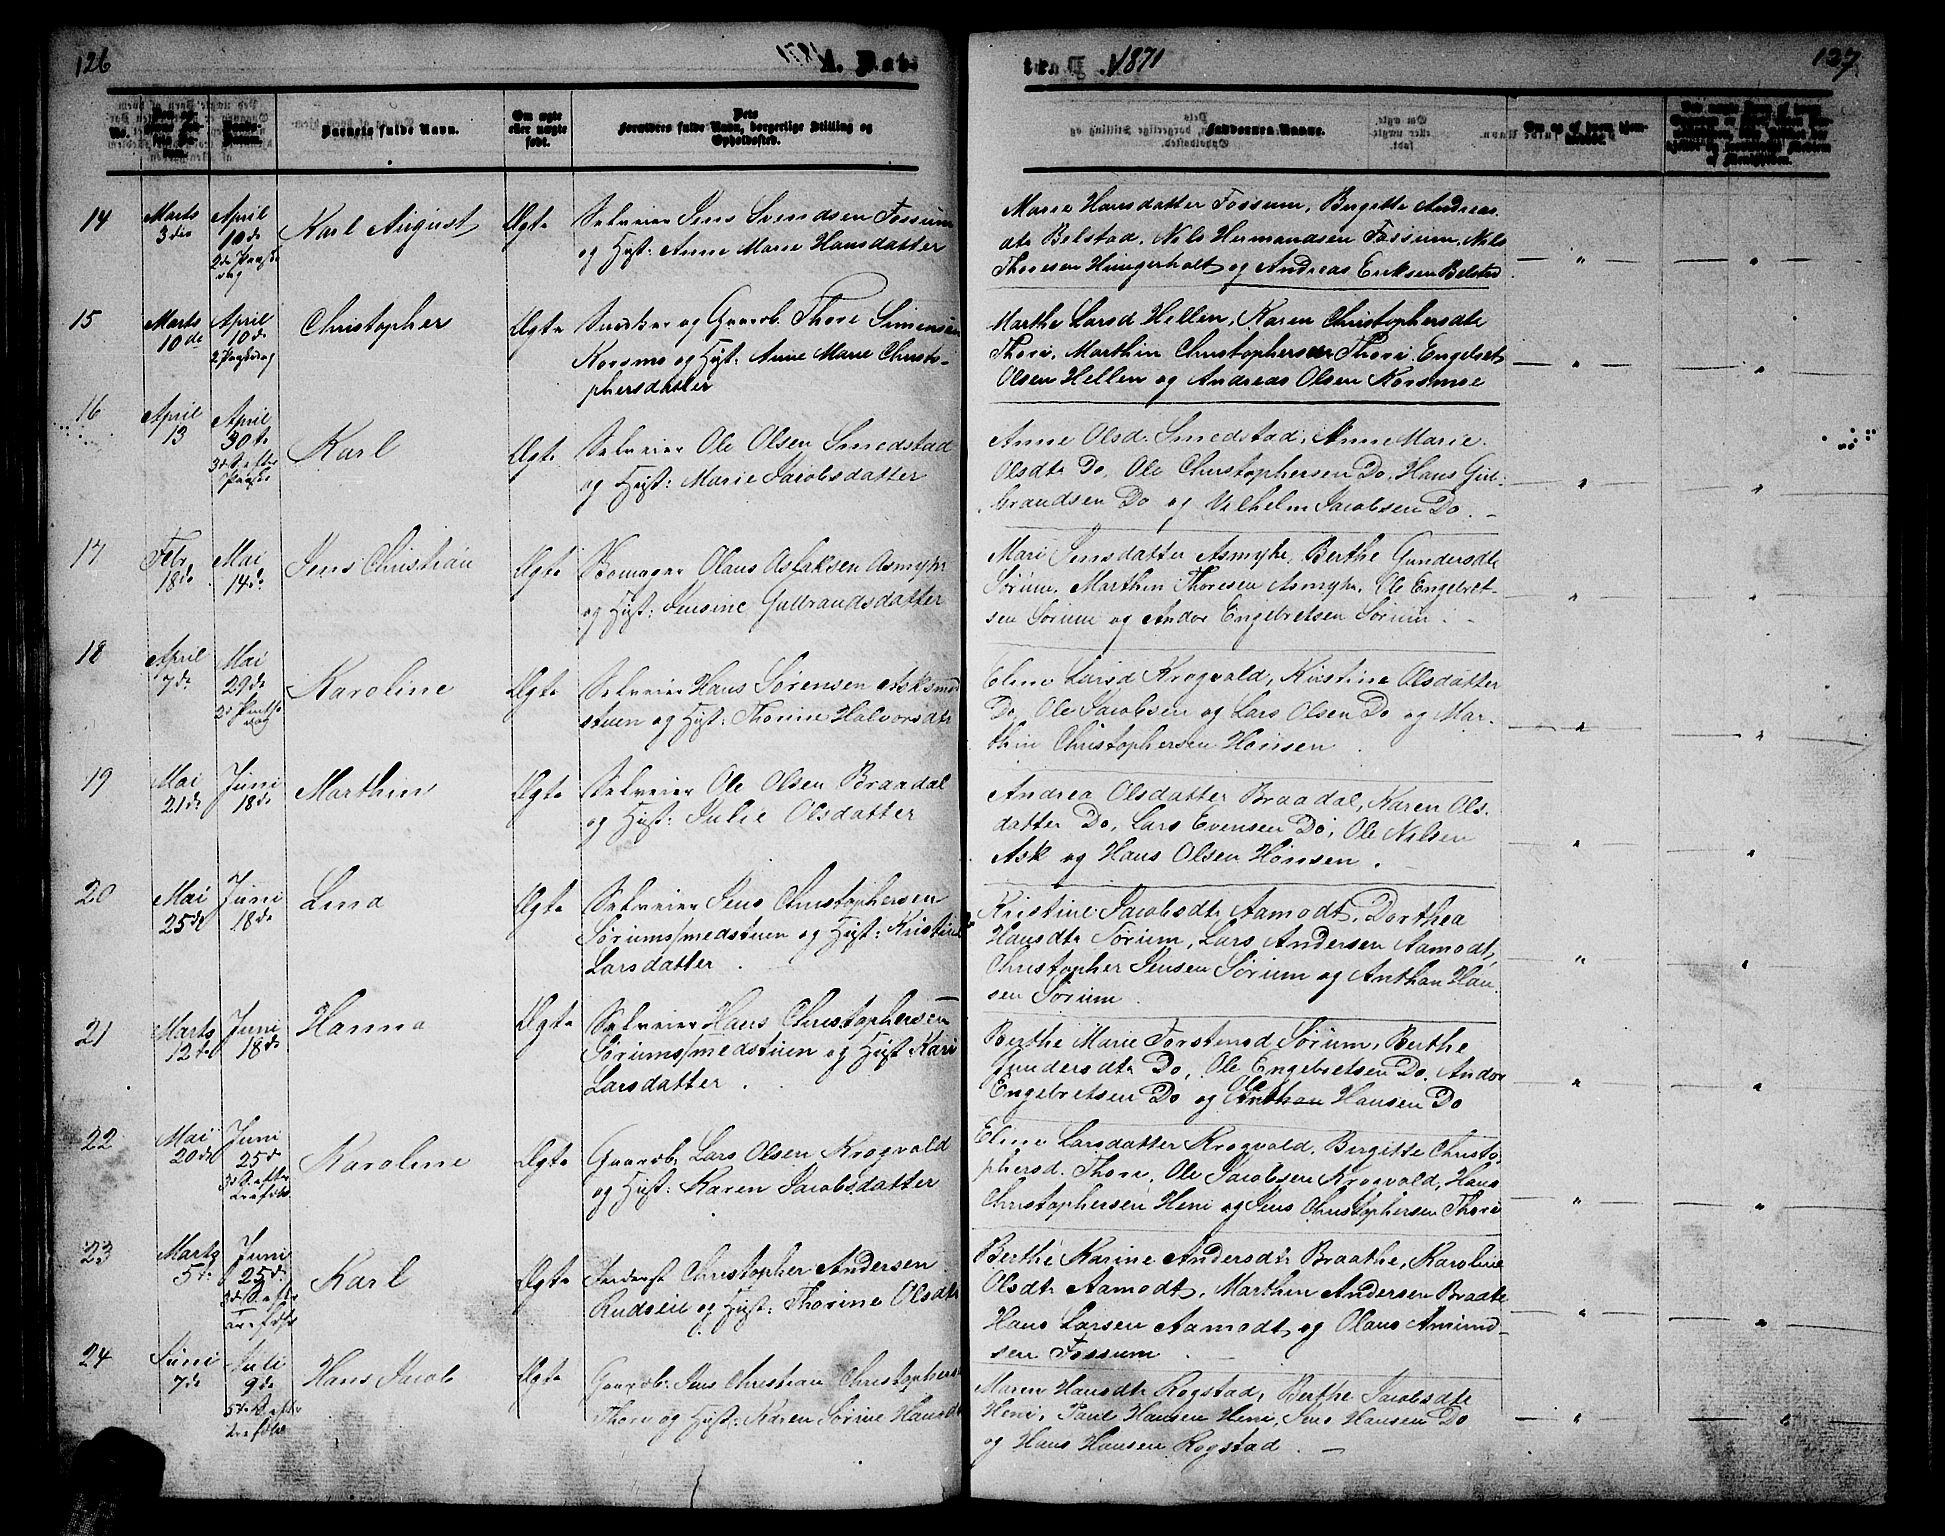 126
A. Dåb
1871
No.
Barnets fulde Navn.
Om ægte eller uægte født.
Forældres fulde Navn, borgerlige Stilling og Opholdssted.
14
Marts 3die
April 10de
2de Paaskedag
Karl August
Ægte
Selveier Jens Svendsen Fossum
og Hust: Anne Marie Hansdatter
15
Marts 10de
April 10de
2 Paaskedag
Christopher
Ægte
Snedker og Gaardb. Thore Simensen
Korsmo og Hust: Anne Marie Christo-
phersdatter
16
April 13
April 30te
3de S. efter Paaske
Karl
Ægte
Selveier Ole Olsen Smedstad
og Hust: Marie Jacobsdatter
17
Febr 18de
Mai 14de
Jens Christian
Ægte
Skomager Olaus Aslaksen Asmyhr
og Hust: Jensine Gulbrandsdatter
18
April 7de
Mai 29de
2de Pintsedag
Karoline
Ægte
Selveier Hans Sørensen Asksmed
stuen og Hust: Thorine Halvorsdt
19
Mai 21de
Juni 18de
Marthin
Ægte
Selveier Ole Olsen Braadal
og Hust: Julie Olsdatter
20
Mai 25de
Juni 18de
Lina
Ægte
Selveier Jens Christophersen
Sørumsmedstuen og Hust: Kristine
Larsdatter.
21
Marts 12te
Juni 18de
Hanna
Ægte
Selveier Hans Christophersen
Sørumsmedstuen og Hust Kari
Larsdatter.
22
Mai 20de
Juni 25de
3de S. efter Trefold.
Karoline
Ægte
Gaardb. Lars Olsen Krogvold
og Hust: Karen Jacobsdatter
23
Marts 5te
Juni 25de
3de S. efter Trefold
Karl
Ægte
Inderst Christopher Andersen
Rudseie og Hust: Thorine Olsdt
24
Juni 7de
Juli 9de
5te S. eft. Trefold
Hans Jacob
Ægte
Gaardb: Jens Christian Christophers
Thore og Hust: Karen Sørine Hansdt
1871
127
Faddernes Navne.
Marie Hansdatter Fossum, Birgitte Andreas
dt. Belstad, Nils Hermandsen Fossum, Nils
Thoresen Hungerholt og Andreas Eriksen Belstad
Marthe Larsd Hellen, Karen Christophersdt.
Thori, Marthin Christophersen Thori, Engebret
Olsen Hellen og Andreas Olsen Korsmoe
Anne Olsd. Smedstad, Anne Marie
Olsdt. Do, Ole Christophersen Do, Hans Gul-
brandsen Do og Vilhelm Jacobsen Do. -
Mari Jensdatter Asmyhr, Berthe Gundersdt.
Sørum, Marthin Thoresen Asmyhr, Ole Engebret-
sen Sørum og Andor Engebretsen Sørum. -
Eline Larsd Krogvold, Kristine Olsdatter
Do, Ole Jacobsen og Lars Olsen Do og Mar-
thin Christophersen Hønsen.
Andrea Olsdatter Braadal, Karen Ols-
datter Do, Lars Evensen Do, Ole Nilsen
Ask og Hans Olsen Hønsen.
Kristine Jacobsdt. Aamodt, Dorthea
Hansdt. Sørum, Lars Andersen Aamodt,
Christopher Jensen Sørum og Anthon Han-
sen Sørum.
Berthe Marie Forstmod Sørum, Berthe
Gundersdt. Do, Ole Engebretsen Do, Andor
Engebretsen Do og Ole Anthon Hansen Do
Eline Larsdatter Krogvold, Birgitte Christo-
phersd. Thore, Ole Jacobsen Krogvold, Hans
Christophersen Heni og Jens Christophersen Thori
Berthe Karine Andersdt. Braathe, Karoline
Olsdt. Aamodt, Marthin Andersen Braate
Hans Larsen Aamodt og Olaus Amund-
sen Fossum. -
Maren Hansdt. Rogstad, Berthe Jacobsdt.
Heni, Paul Hansen Heni, Jens Hansen Do
og Hans Hansen Rogstad. -